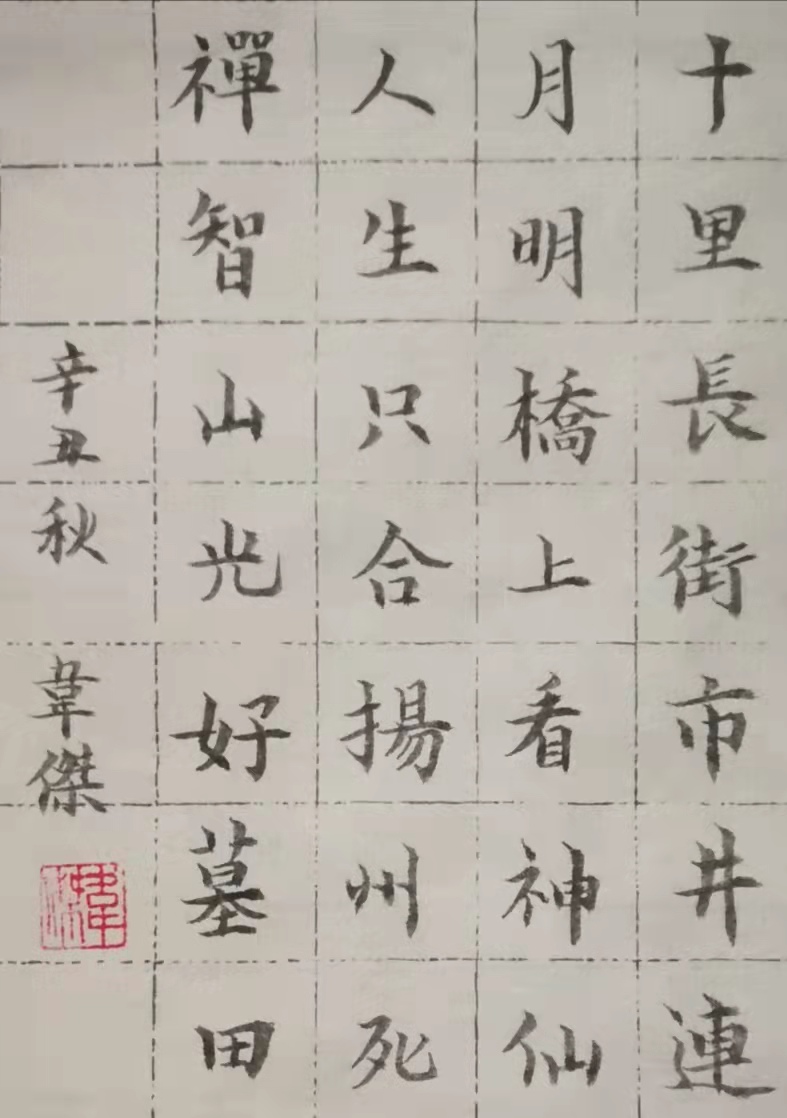 十里長街市井連
月明橋上看神仙
人生只合揚州死
禪智山光好墓田
辛丑秋 韋傑